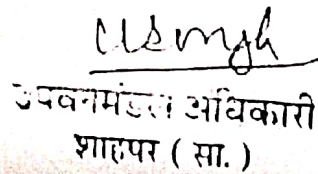 उपवनमंडल अधिकारी
शाहपर ( सा. )